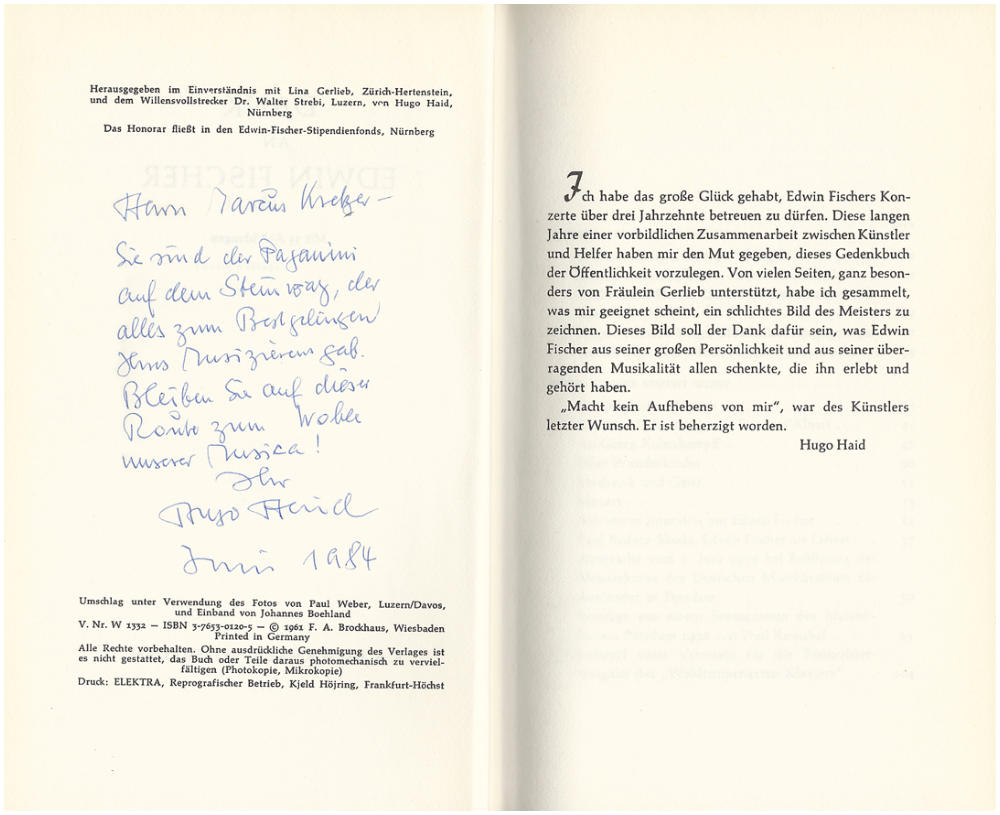 Herausgegeben im Einverständnis mit Lina Gerlieb, Zürich-Hertenstein,
und dem Willensvollstrecker Dr. Walter Strebi, Luzern, von Hugo Haid,
Nürnberg
Das Honorar fließt in den Edwin-Fischer-Stipendienfonds, Nürnberg
EDWIN FISCHER
Herrn Marcus Kretzer –
Sie sind der Paganini
auf dem Steinway, der
alles zum Bestgelingen
Ihres Musizierens gab.
Bleiben Sie auf dieser
Route zum Wohle
unserer Musica!
Ihr
Hugo Haid
Juni 1984
Umschlag unter Verwendung des Fotos von Paul Weber, Luzern/Davos,
und Einband von Johannes Boehland
V. Nr. W 1332 — ISBN 3-7653-0120-5 — © 1961 F. A. Brockhaus, Wiesbaden
Printed in Germany
Alle Rechte vorbehalten. Ohne ausdrückliche Genehmigung des Verlages ist
es nicht gestattet, das Buch oder Teile daraus photomechanisch zu verviel-
fältigen (Photokopie, Mikrokopie)
Druck: ELEKTRA, Reprografischer Betrieb, Kjeld Höjring, Frankfurt-Höchst
Ich habe das große Glück gehabt, Edwin Fischers Kon-
zerte über drei Jahrzehnte betreuen zu dürfen. Diese langen
Jahre einer vorbildlichen Zusammenarbeit zwischen Künstler
und Helfer haben mir den Mut gegeben, dieses Gedenkbuch
der Öffentlichkeit vorzulegen. Von vielen Seiten, ganz beson-
ders von Fräulein Gerlieb unterstützt, habe ich gesammelt,
was mir geeignet scheint, ein schlichtes Bild des Meisters zu
zeichnen. Dieses Bild soll der Dank dafür sein, was Edwin
Fischer aus seiner großen Persönlichkeit und aus seiner über-
ragenden Musikalität allen schenkte, die ihn erlebt und
gehört haben.
„Macht kein Aufhebens von mir“, war des Künstlers
letzter Wunsch. Er ist beherzigt worden.
Hugo Haid